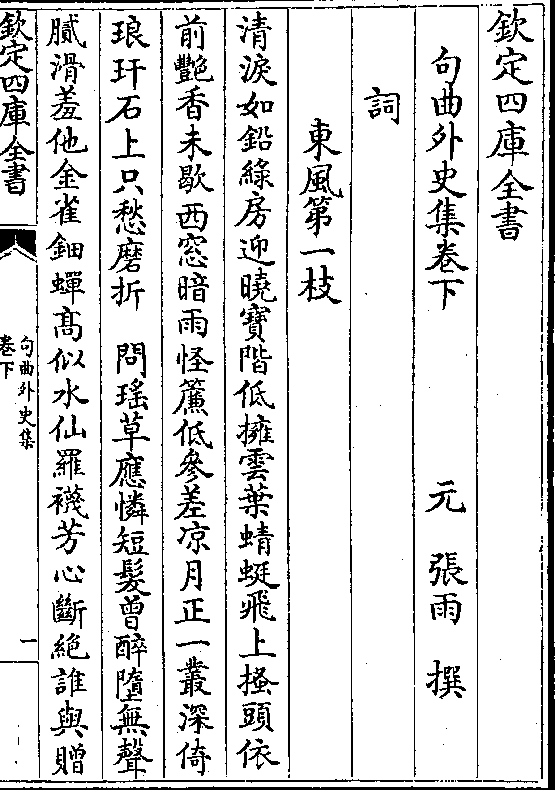 欽定四庫全書
句曲外史集卷下
元 張雨 撰
詞
東風第一枝
清淚如鉛綠房迎曉寶階低擁雲葉蜻蜓飛上搔頭依
前艷香未歇西窓暗雨怪簾低參差凉月正一叢深倚
琅玕石上只愁磨折 問瑤草應憐短髮曾醉墮無聲
膩滑羞他金雀鈿蟬髙似水仙羅襪芳心斷絶誰與贈
欽定四庫全書
句曲外史集
卷下
一